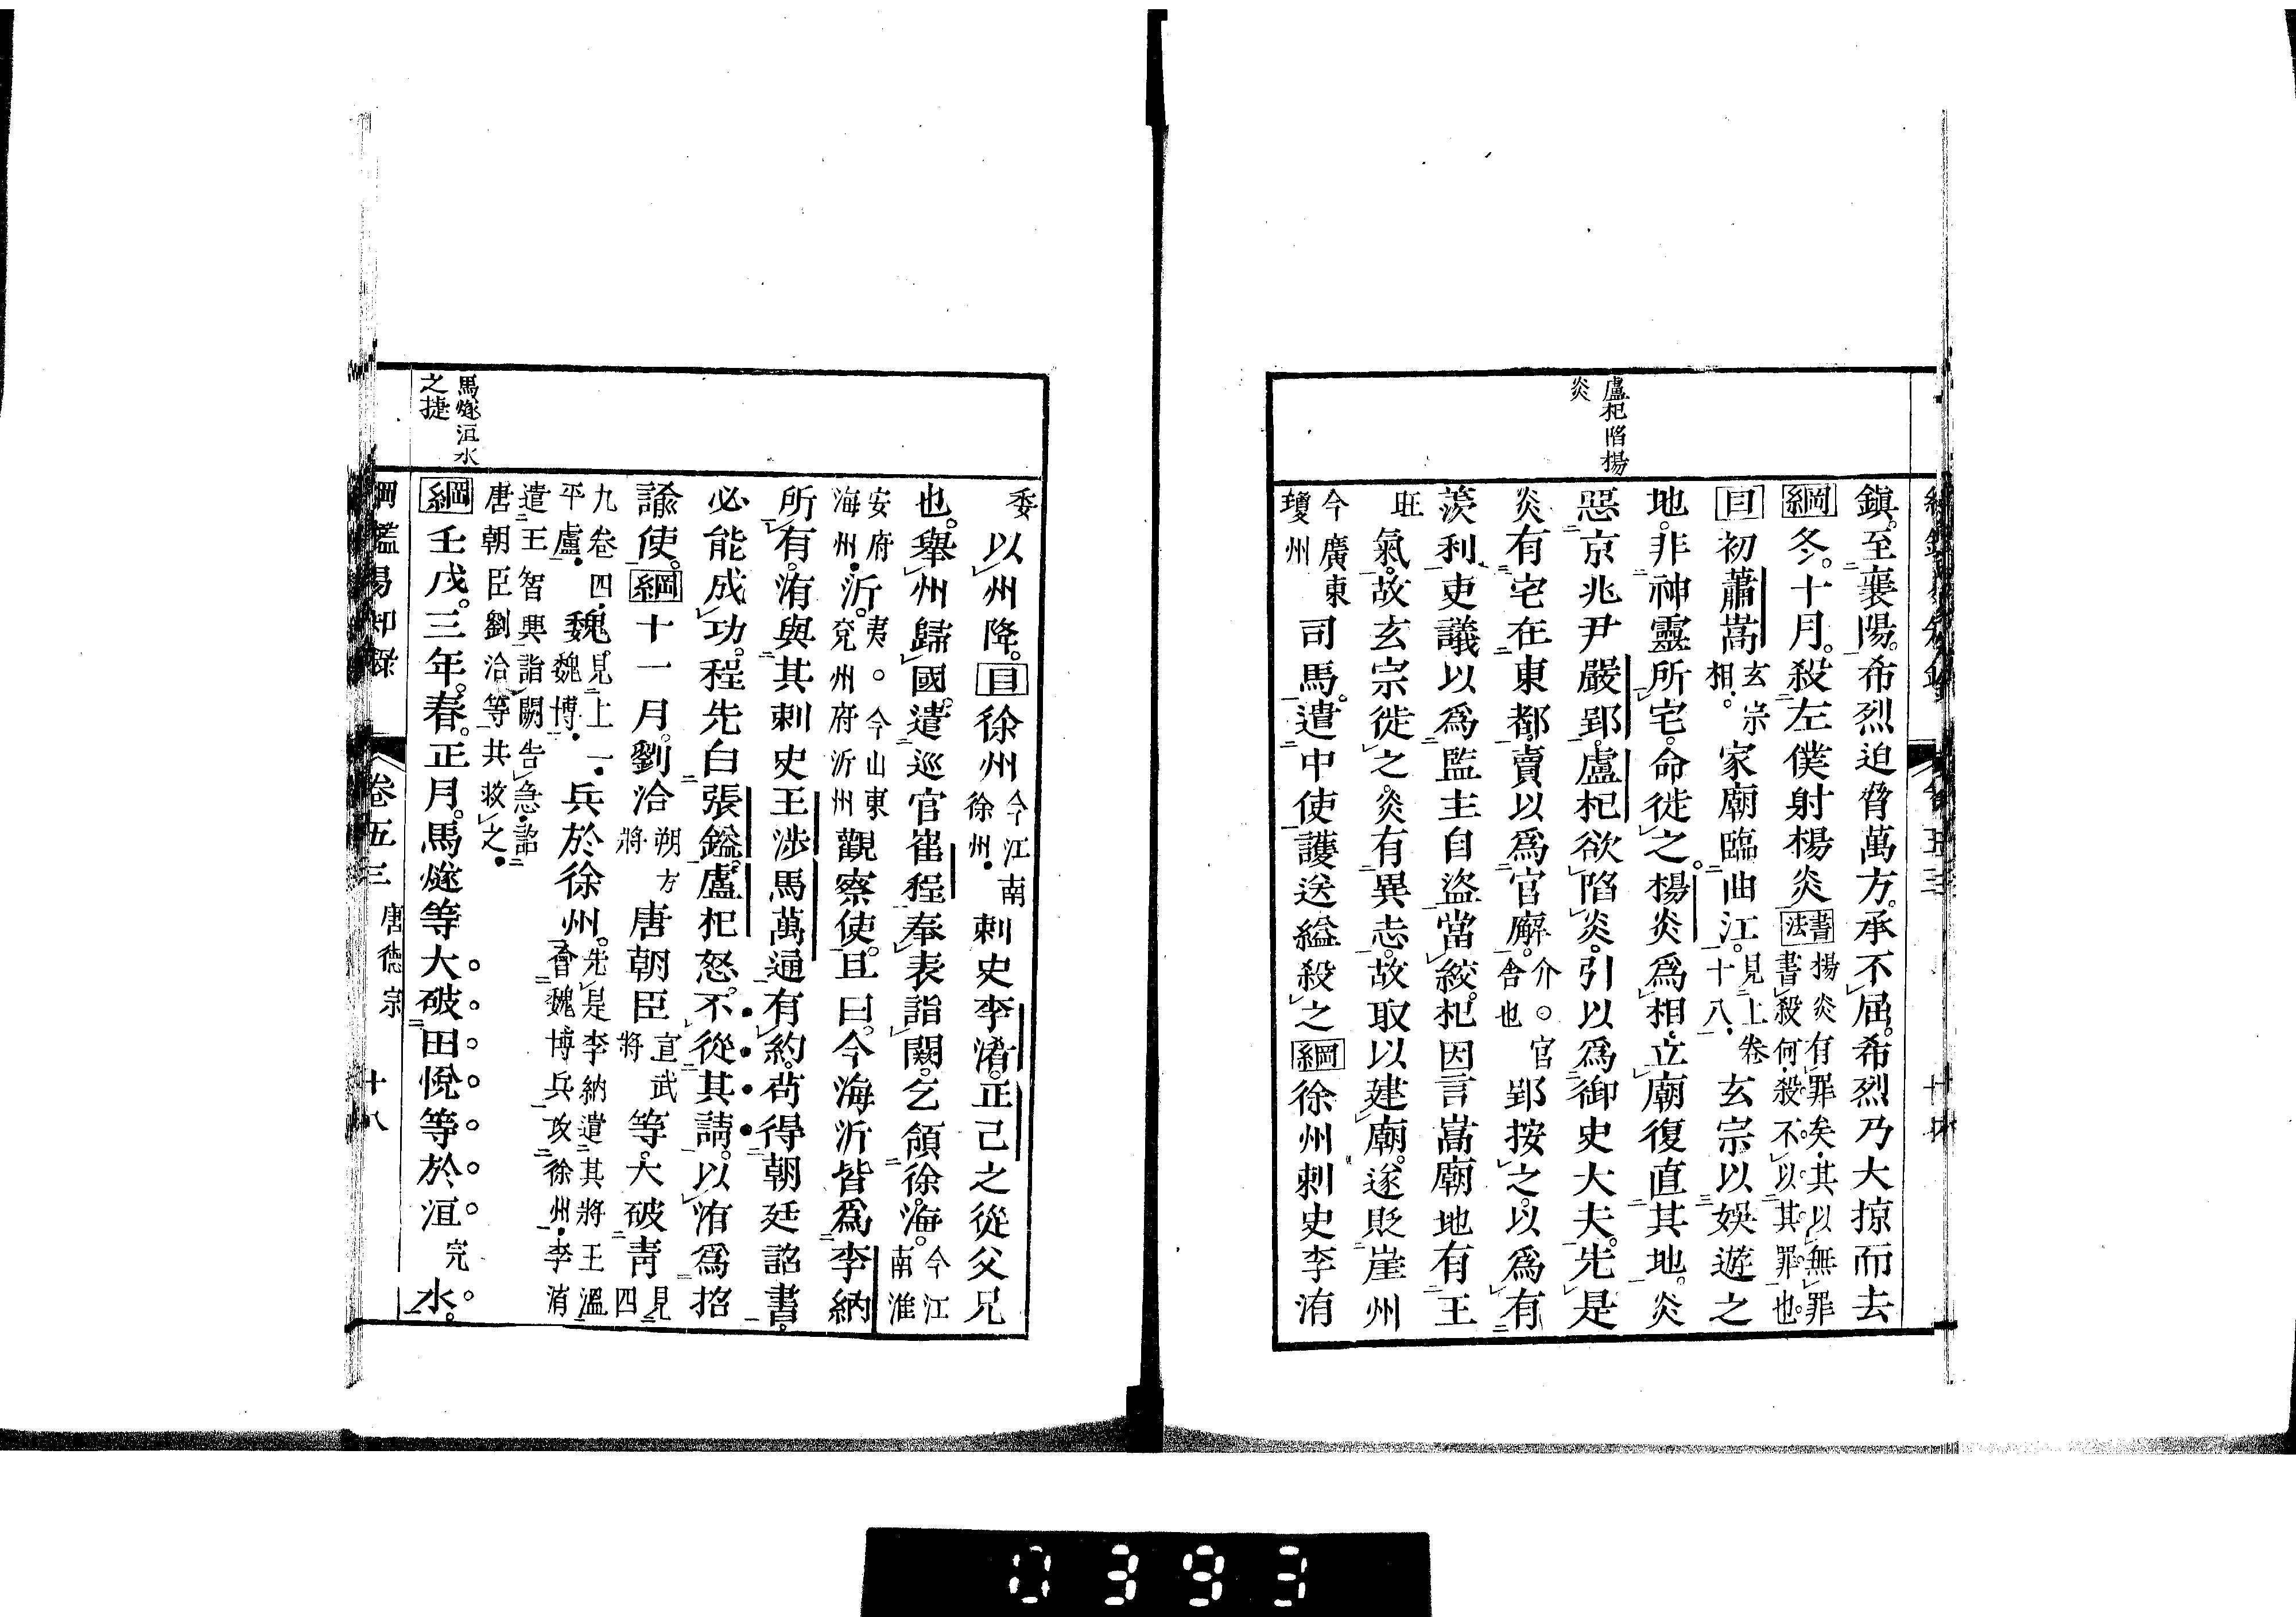 盧杞陷楊
炎
鎮。至襄陽。希烈迫脅萬方。承不屈。希烈乃大掠而去
綱冬。十月。殺左僕射楊炎書法揚炎有罪矣其以無罪書殺何殺不以其罪也
目初蕭嵩玄宗相。家廟臨曲江。見上卷十八玄宗以娛遊之
地。非神靈所宅。命徙之。楊炎爲相。立廟復直其地。炎
惡京兆尹嚴郢。盧杞欲陷炎。引以爲御史大夫。先是
炎有宅在東都。賣以爲官廨。介。官舍也郢按之。以爲有
羨利。吏議以爲監主自盜。當絞。杞因言嵩廟地有王
旺氣。故玄宗徙之。炎有異志。故取以建廟。遂貶崖州
今廣東瓊州司馬。遣中使護送縊殺之綱徐州刺史李洧
委以州降。目徐州今江南徐州刺史李洧。正己之從父兄
也。舉州歸國。遣巡官崔程奉表詣闕。乞領徐。海。今江南淮
安府海州沂。夷。今山東兗州府沂州觀察使。且曰。今海沂皆爲李納
所有。洧與其刺史王涉馬萬通有約。苟得朝廷詔書。
必能成功。程先白張鎰。盧杞怒。不從其請。以洧爲招
諭使。綱十一月。劉洽朔方將唐朝臣宣武將等。大破青見四
九卷四平盧魏。見上一魏博兵於徐州。先是李納遣其將王溫會魏博兵攻徐州李洧
遣王智興詣闕告急詔唐朝臣劉洽等共救之
綱壬戌。三年。春。正月。馬燧等大破田悅等於洹完水。
馬燧洹水
之捷
綱鑑易知錄 卷五三 唐德宗 十八
0393